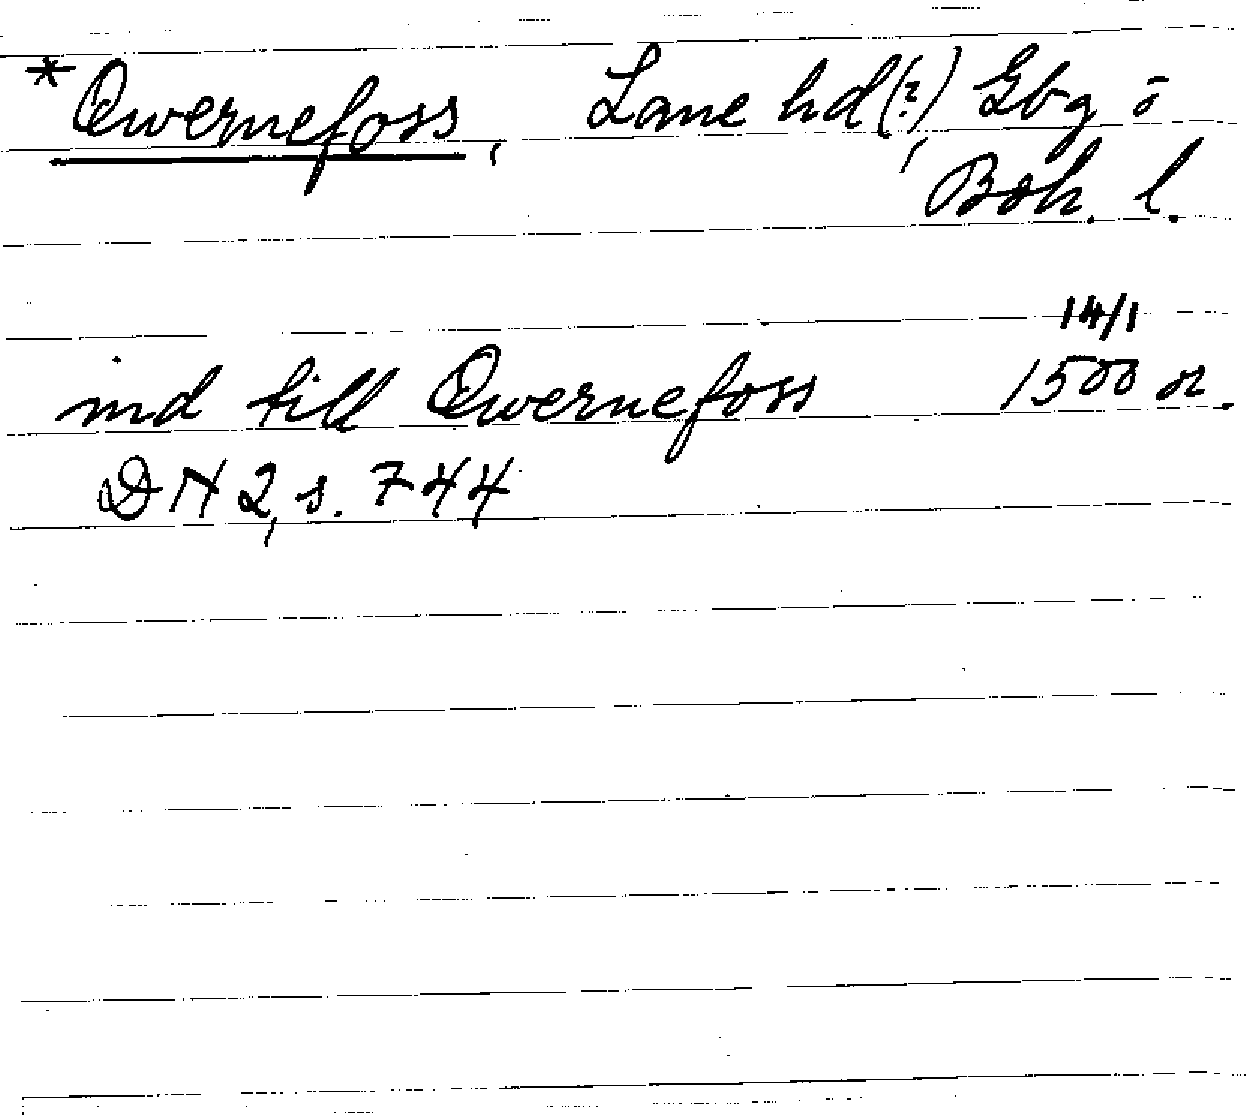 *Qwernefoss, Lane hd(?), Gbg o
Boh. l.
14/1
ind till Qwernefoss 1500 or.
DN 2, s. 744